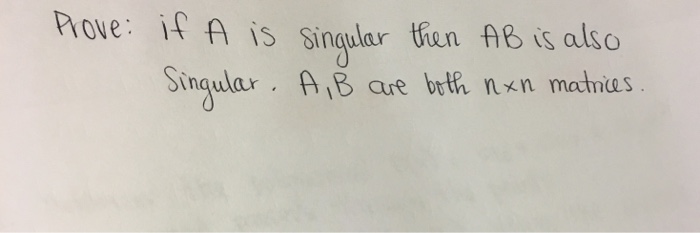 Prove: if A is singular then AB is also
Singular. A,B are both n×n matrices.